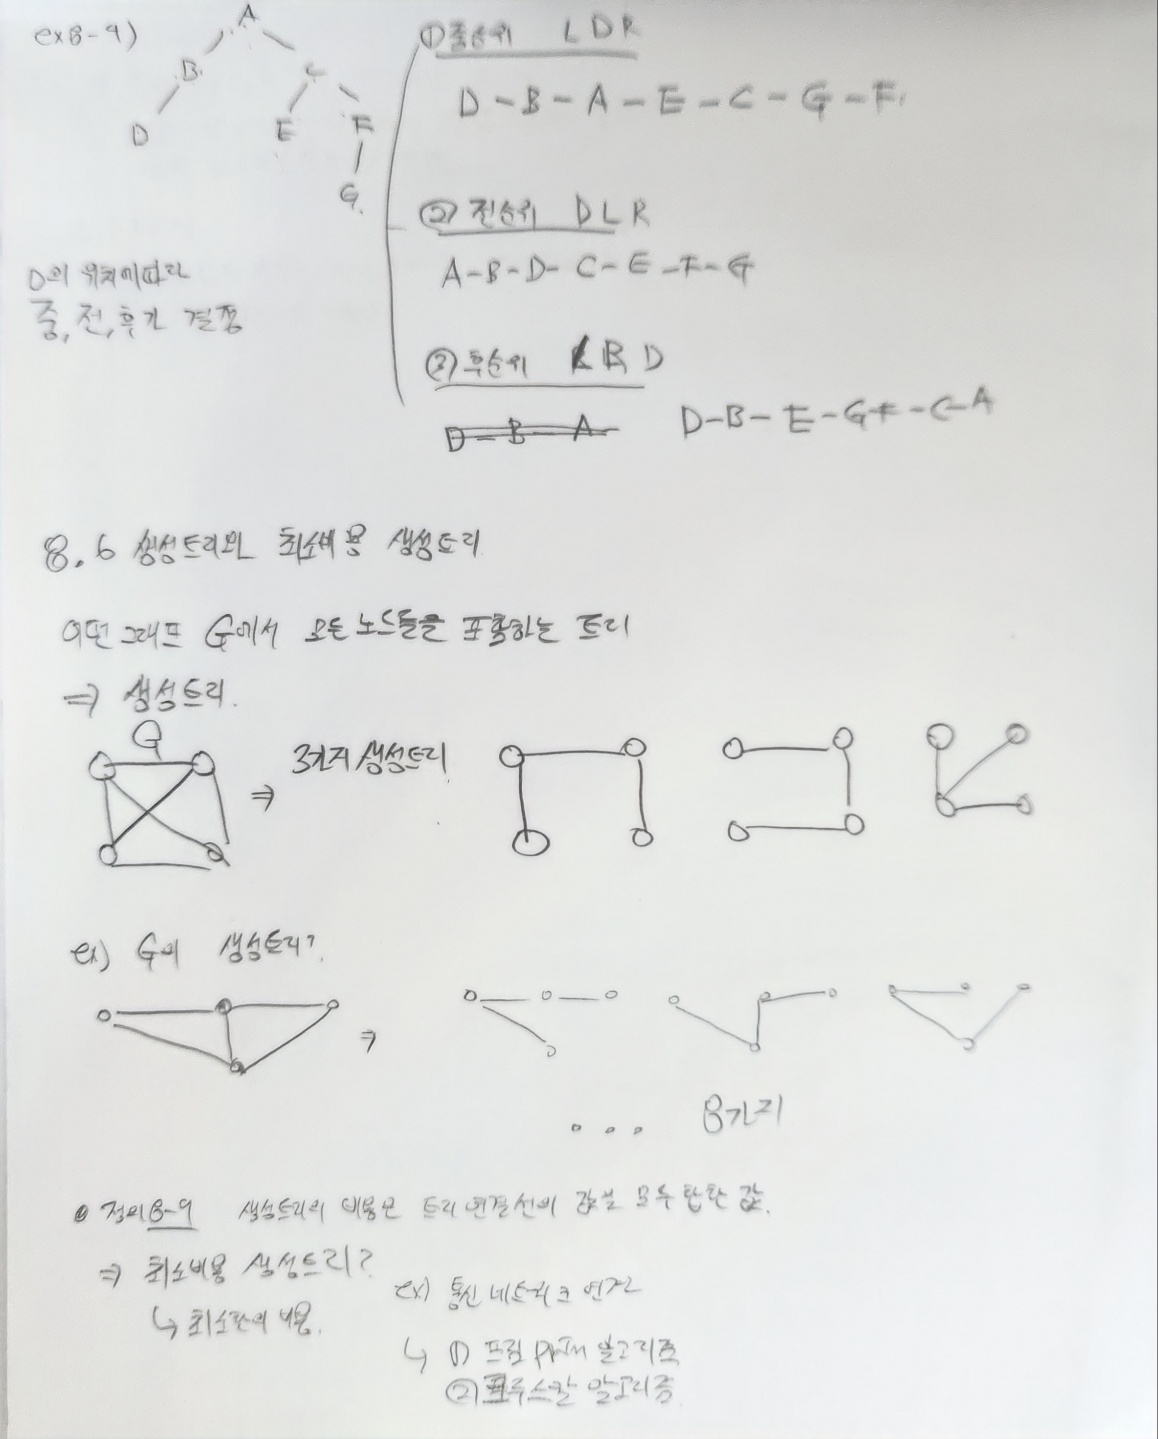 ex8-9)
A
B C
D E F
G.
① 중순위 LDR
D - B - A - E - C - G - F
② 전순위 DLR
A-B-D-C-E-F-G
D의 위치에따라
중, 전, 후가 결정
③ 후순위 LRD
D-B-A
D-B-E-G-F-C-A
8.6 생성트리와 최소비용 생성트리
어떤 그래프 G에서 모든 노드들을 포함하는 트리
⇒ 생성트리.
G
⇒ 3가지 생성트리
ex) G의 생성트리?
⇒
... 8가지
• 정의8-9 생성트리의 비용은 트리 연결선의 값을 모두 합한 값.
⇒ 최소비용 생성트리?
↳ 최소한의 비용.
ex) 통신 네트워크 연결
↳ ① 프림 prim 알고리즘
② 크루스칼 알고리즘